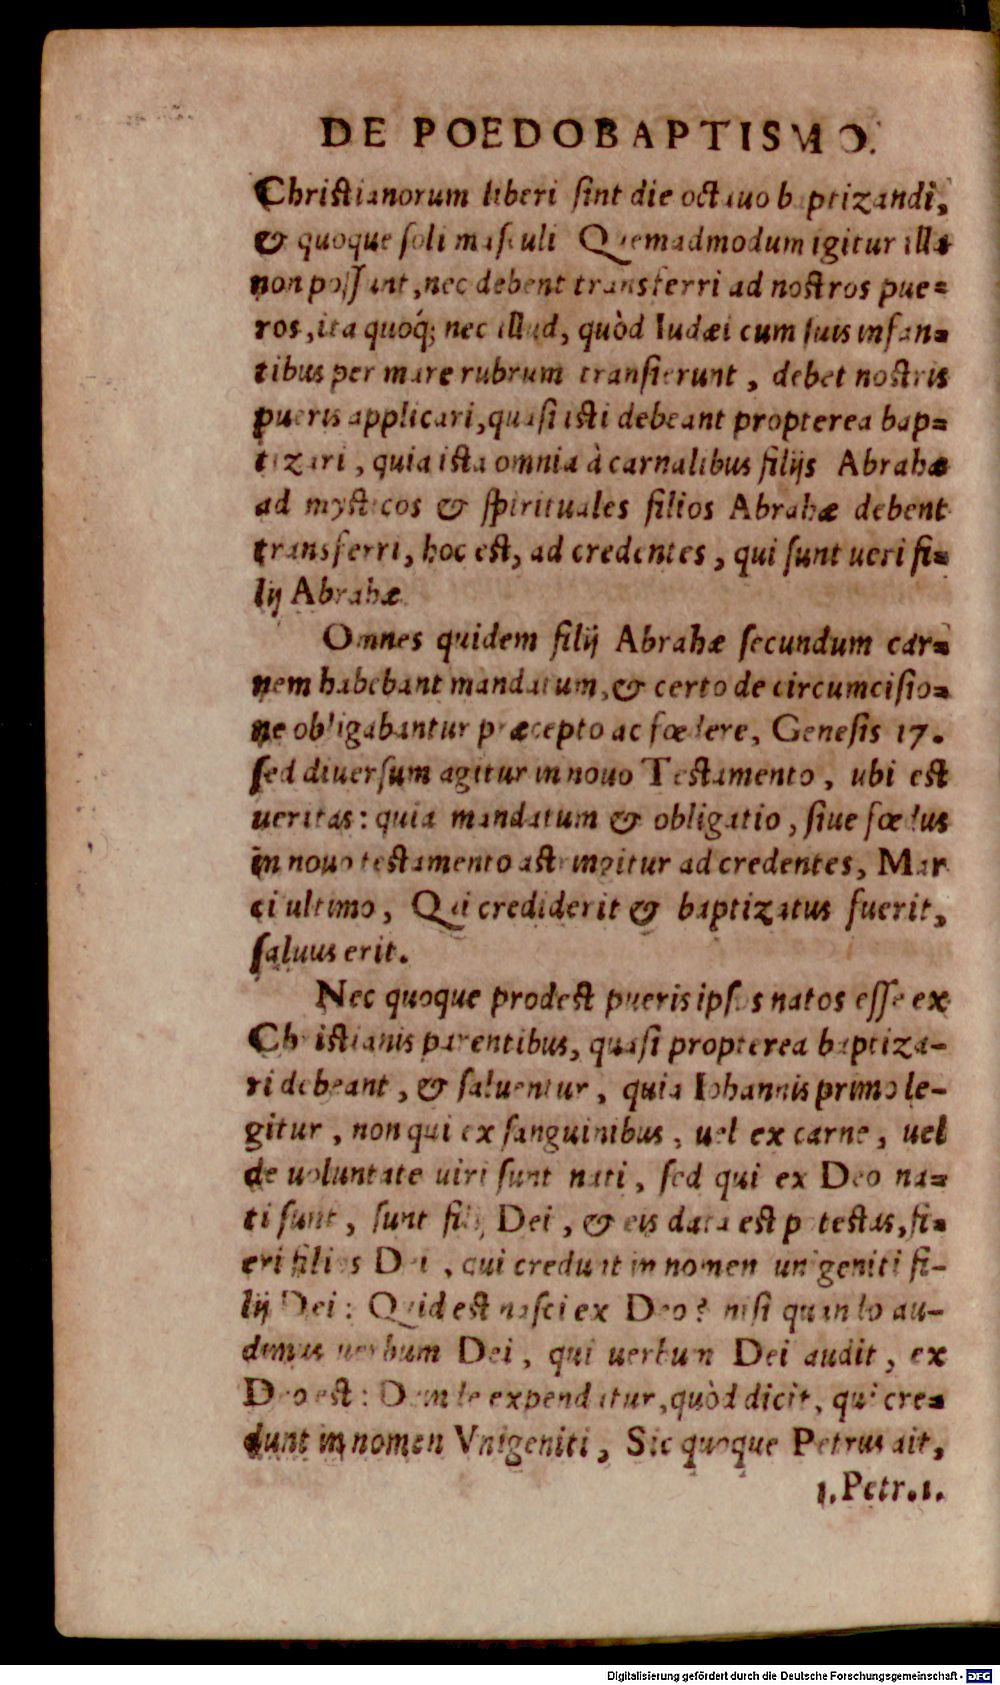 DE POEDOBAPTISMO.
Christianorum liberi sint die octauo baptizandi,
& quoque soli masculi Quemadmodum igitur illa
non possunt, nec debent transferri ad nostros pue=
ros, ita quoq; nec illud, quòd Iudæi cum suis infan=
tibus per mare rubrum transierunt, debet nostris
pueris applicari, quasi isti debeant propterea bap=
tizari, quia ista omnia à carnalibus filijs Abrahæ
ad mysticos & spirituales filios Abrahæ debent
transferri, hoc est, ad credentes, qui sunt ueri fi=
lij Abrahæ.
Omnes quidem filij Abrahæ secundum car=
nem habebant mandatum, & certo de circumcisio=
ne obligabantur præcepto ac fœdere, Genesis 17.
sed diuersum agitur in nouo Testamento, ubi est
ueritas: quia mandatum & obligatio, siue fœdus
in nouo testamento astringitur ad credentes, Mar
ci ultimo, Qui crediderit & baptizatus fuerit,
saluus erit.
Nec quoque prodest pueris ipsos natos esse ex
Christianis parentibus, quasi propterea baptiza-
ri debeant, & saluentur, quia Iohannis primo le-
gitur, non qui ex sanguinibus, uel ex carne, uel
de uoluntate uiri sunt nati, sed qui ex Deo na=
ti sunt, sunt filij Dei, & eis data est potestas, fi=
eri filios Dei, qui credunt in nomen unigeniti fi-
lij Dei: Quid est nasci ex Deo? nisi quando au-
dimus uerbum Dei, qui uerbum Dei audit, ex
Deo est: Deinde expendatur, quòd dicit, qui cre=
dunt in nomen Vnigeniti, Sic quoque Petrus ait,
1. Petr. 1.
Digitalisierung gefördert durch die Deutsche Forschungsgemeinschaft - DFG